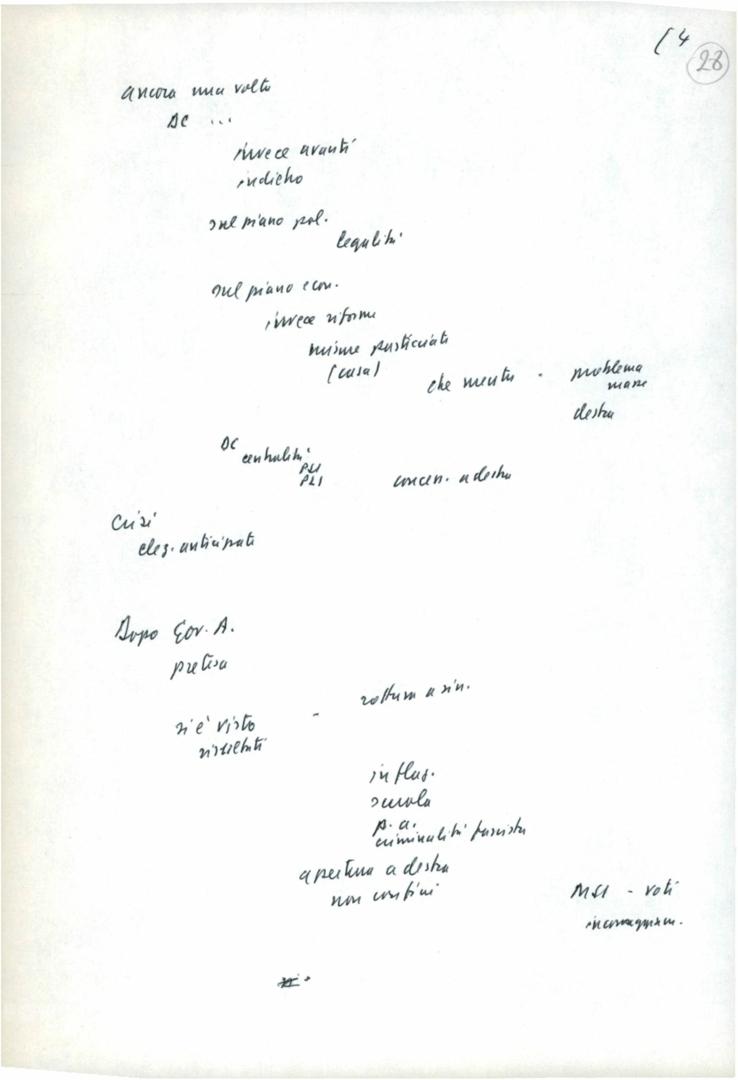 [4
28
ancora una volta
DC ...
invece avanti
indietro
sul piano pol.
legalità
sul piano econ.
invece riforme
misure pasticciate
(casa)
che mentre - problema
mare
destra
DC
centralità
PSI
PLI
concen. a destra
Crisi
elez. anticipate
Dopo Gov. A.
pretesa
rottura a sin.
si è visto -
risultati
inflaz.
scuola
p.a.
criminalità fascista
apertura a destra
non confini
MSI - voti
incoraggiam.